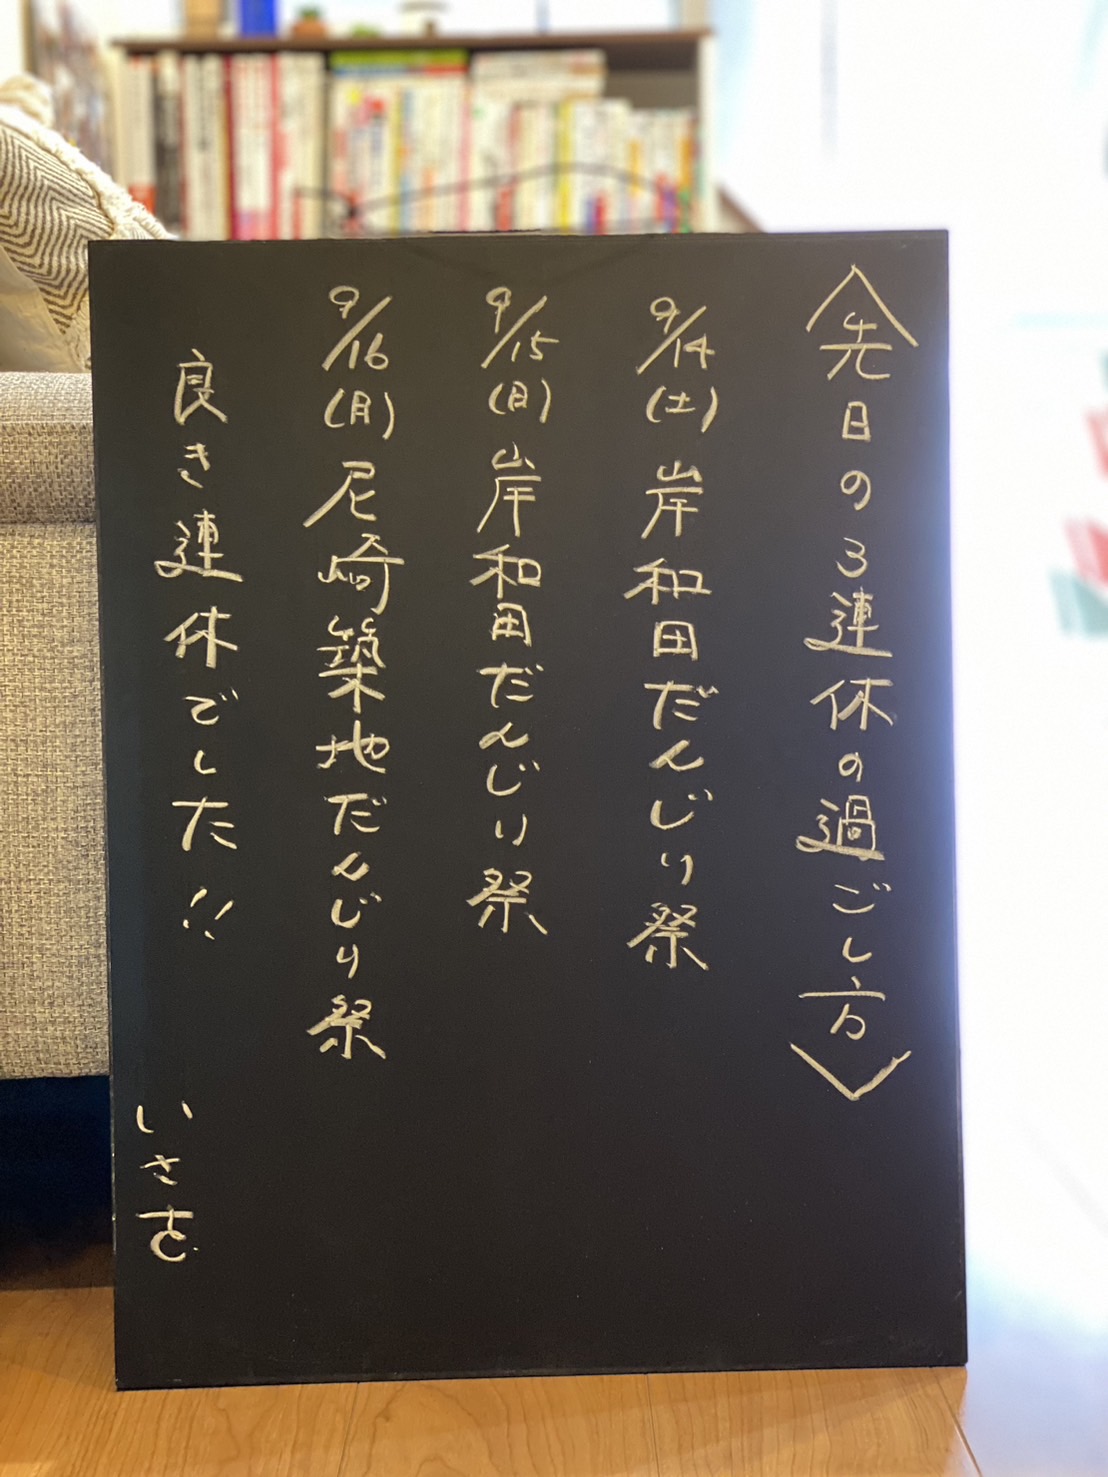 〈先日の3連休の過ごし方〉
9/14(土) 岸和田だんじり祭
9/15(日) 岸和田だんじり祭
9/16(月) 尼崎築地だんじり祭
良き連休でした!!
いさを